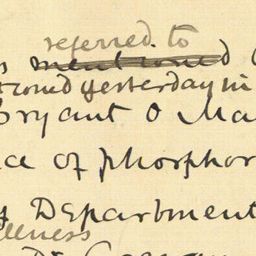 referred to
s mentioned
tioned yesterday in
Bryant & Ma
ce of phosphor
Department
illness